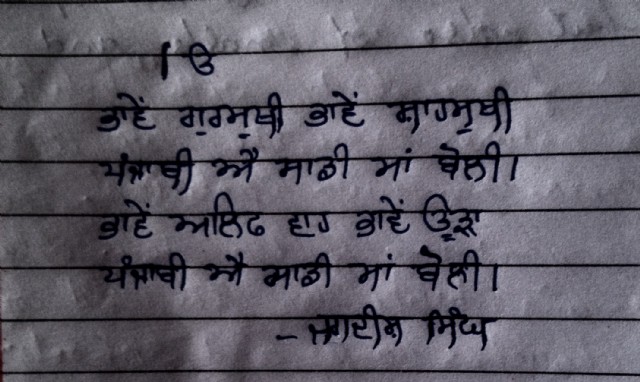 । ੳ
ਭਾਵੇਂ ਗੁਰਮੁਖੀ ਭਾਵੇਂ ਸ਼ਾਹਮੁਖੀ
ਪੰਜਾਬੀ ਐ ਸਾਡੀ ਮਾਂ ਬੋਲੀ।
ਭਾਵੇਂ ਅਲਿਫ ਹਾਹ ਭਾਵੇਂ ਊੜਾ
ਪੰਜਾਬੀ ਐ ਸਾਡੀ ਮਾਂ ਬੋਲੀ।
- ਜਗਦੀਸ਼ ਸਿੰਘ